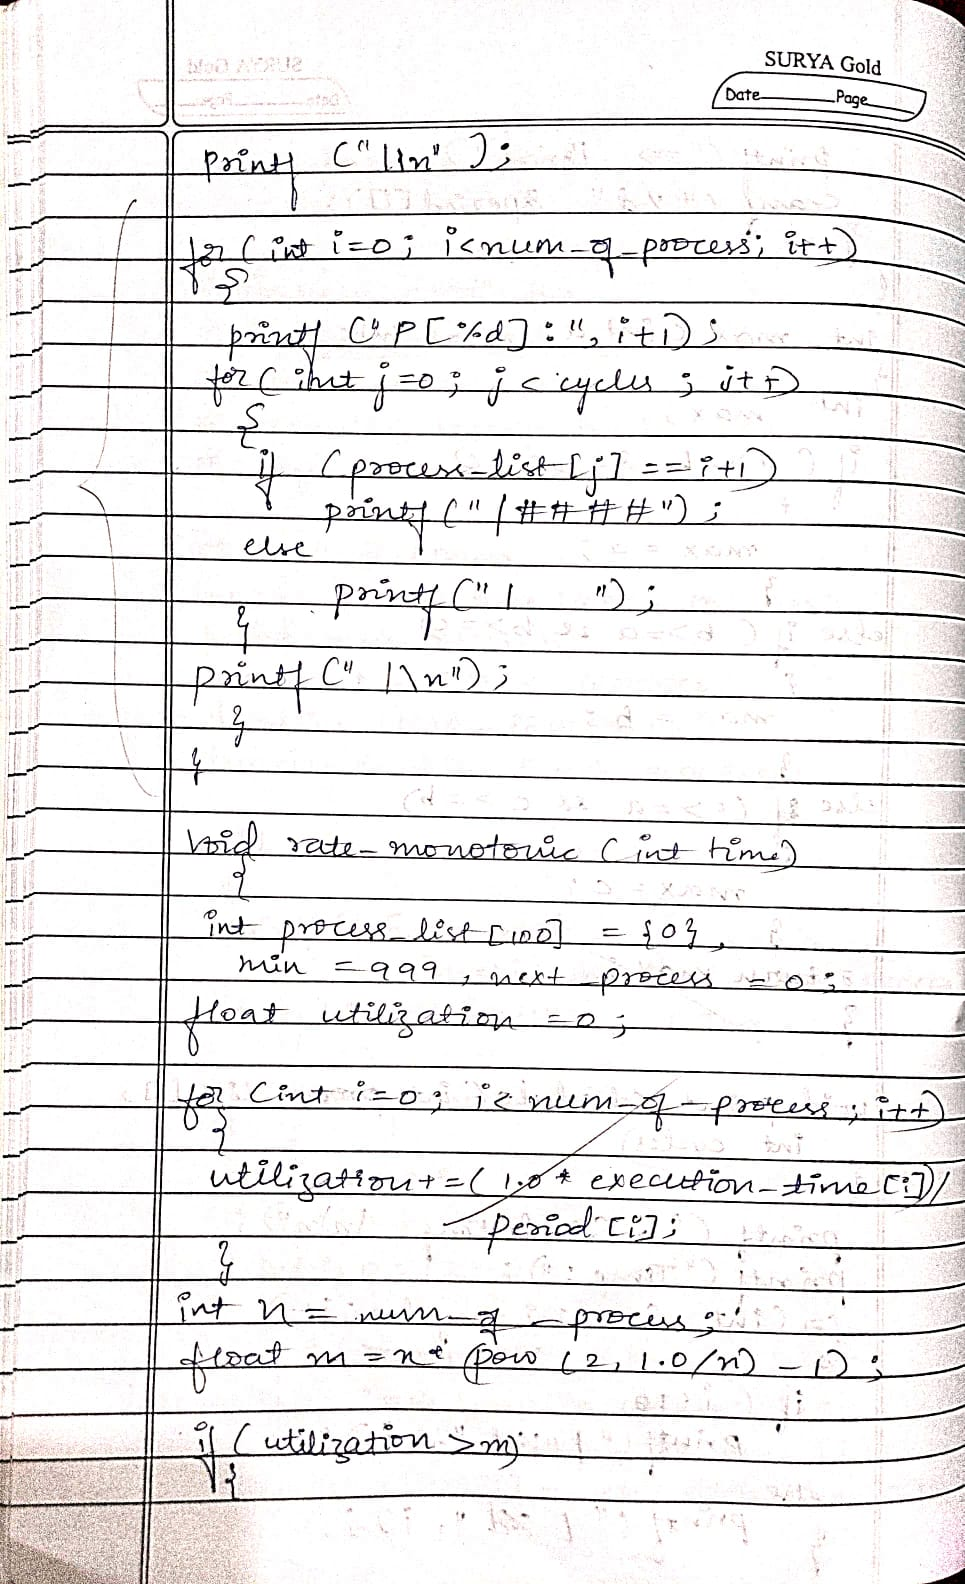 SURYA Gold
Date Page
printf ("|\n" );
for ( int i=0; i<num_of_process; i++)
{
printf (" P[%d] : ", i+1);
for ( int j=0; j<cycles ; j++)
{
if (process_list [j] == i+1)
printf (" |####") ;
else
printf (" | ");
}
printf (" |\n");
}
}
void rate_monotonic ( int time)
{
int process_list [100] = {0},
min = 999 , next_process = 0;
float utilization = 0;
for (int i=0; i< num_of_process ; i++)
{
utilization += ( 1.0 * execution_time [i])/
period [i];
}
int n = num_of_process ;
float m = n * (pow (2, 1.0/n) - 1) ;
if ( utilization > m)
{